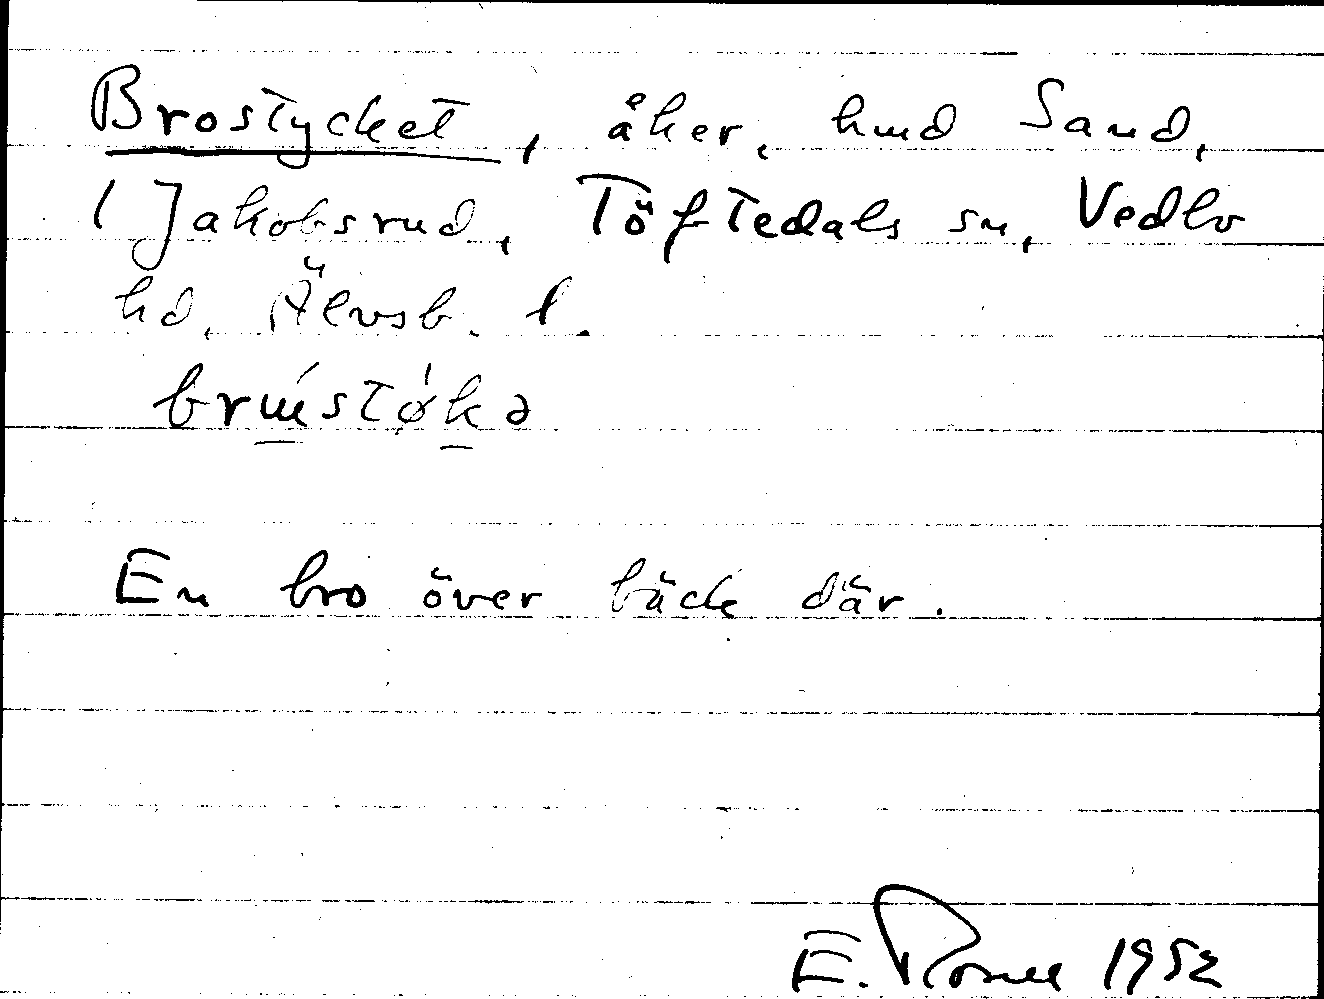 Brostycket, åker, hmd Sand,
1 Jakobsrud, Töftedals sn, Vedbo
hd, Älvsb. l.
En bro över bäck där.
E. 1952